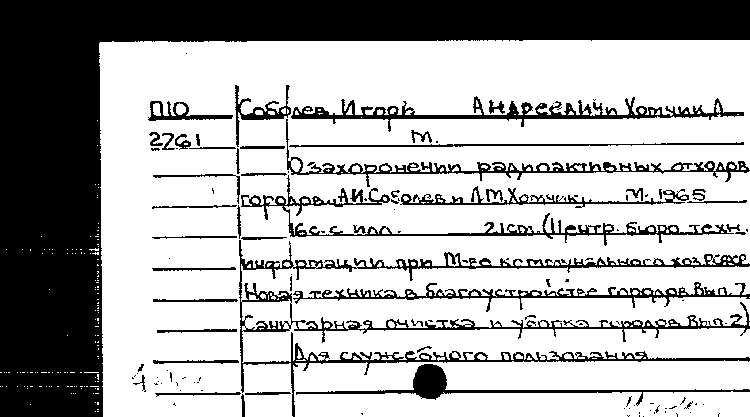 П10 Соболев, Игорь Андреевич и Хомчик, Л.
2761 М.
О захоронении радиоактивных отходов
городов. А.И. Соболев и Л.М. Хомчик. М., 1965
16 с. с илл. 21 cm. (Центр. бюро техн.
информации при М-ве коммунального хоз. РСФСР
Новая техника в благоустройстве городов Вып. 7
Санитарная очистка и уборка городов Вып. 2)
Для служебного пользования